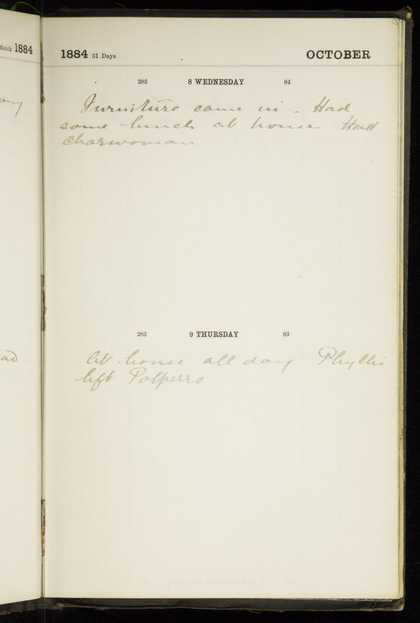 1884
ad
1884 31 Days OCTOBER
282 8 WEDNESDAY 84
Furniture came in - Had
some lunch at house Had
charwoman
283 9 THURSDAY 83
At house all day Phyllis
left Polperro